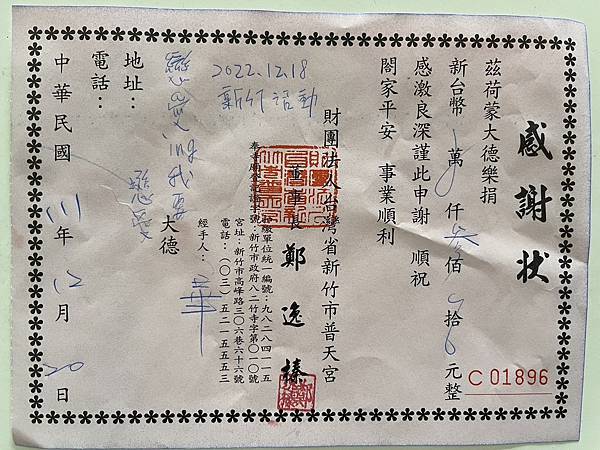 感謝狀
茲荷蒙大德樂捐
新台幣 萬 仟 佰 拾 元整
感激良深謹此申謝 順祝
閤家平安 事業順利
財團法人台灣省新竹市普天宮
董事長 鄭逸榛
扣繳單位統一編號:九八二八四一一五
新竹市政府八二竹寺字第〇一〇號
宮址:新竹市高峰路三〇六巷六十六號
電話:(〇三)五二一五五五三
經手人:華
2022.12.18
新竹活動
大德
地址:
電話:
中華民國 111年 12月 20日
C 01896